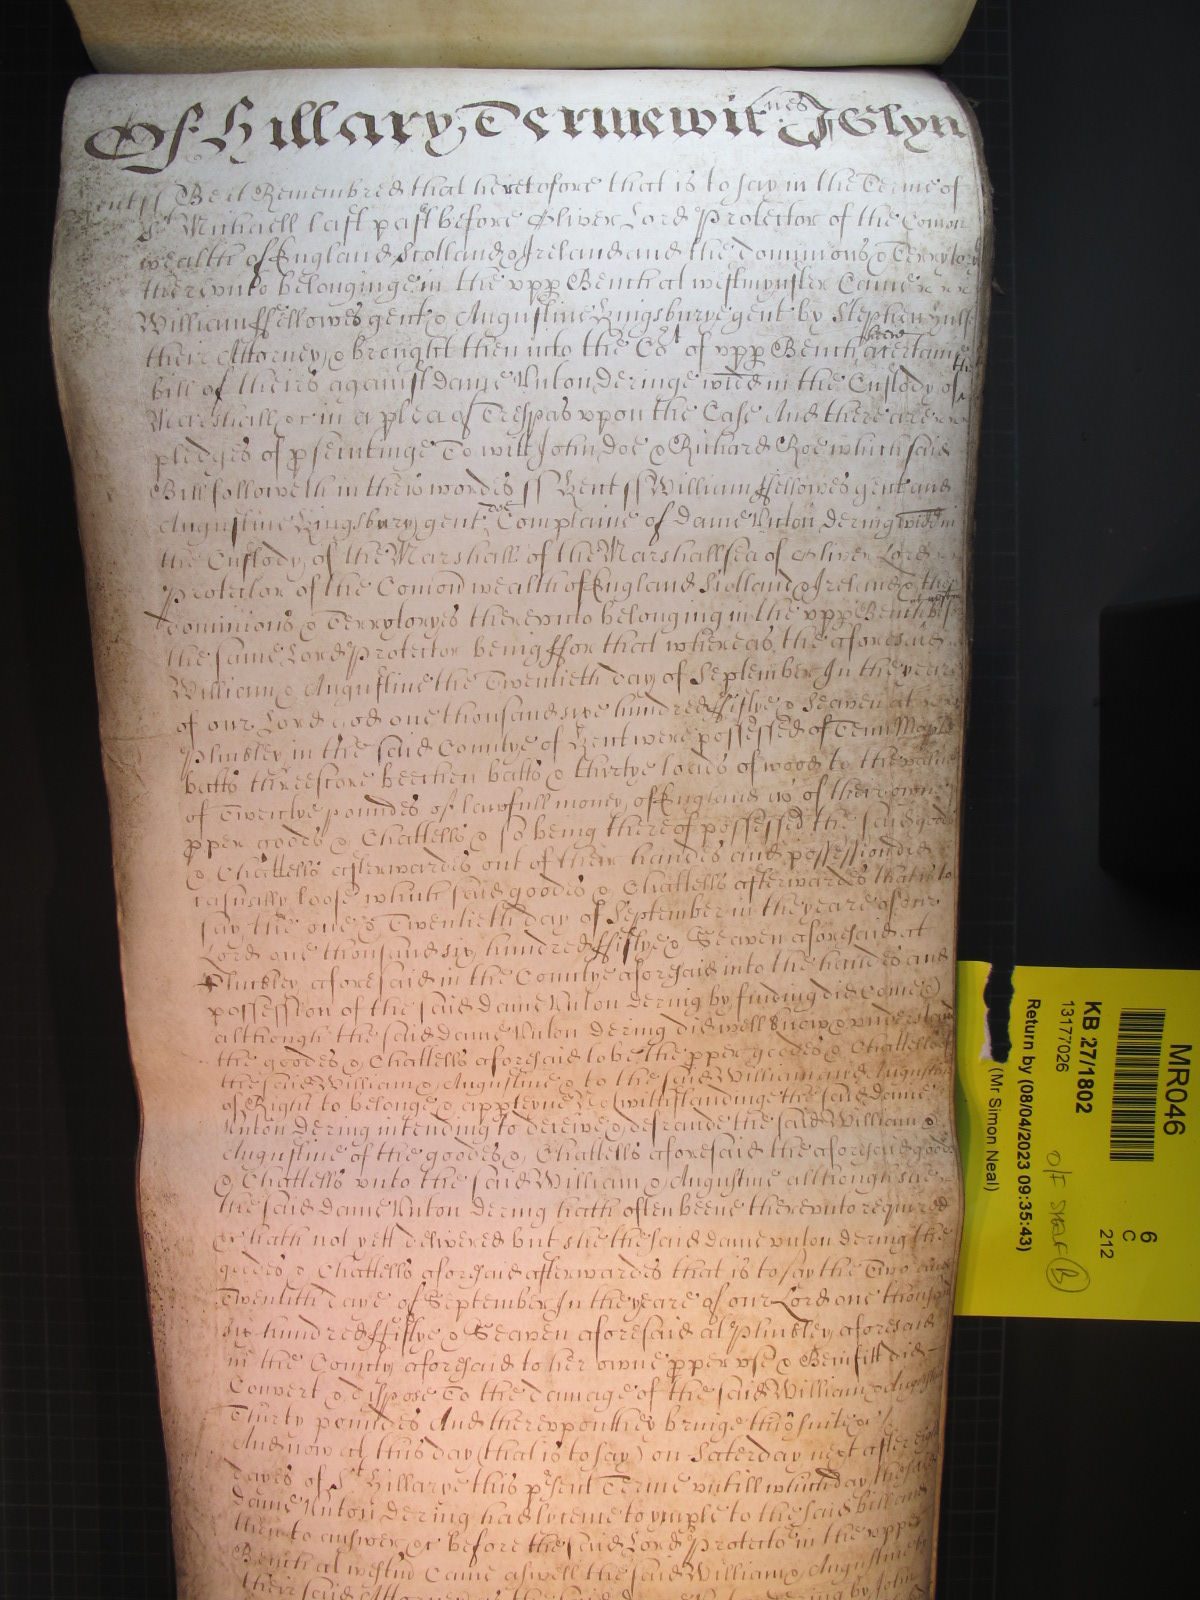 Of Hillary Terme witnes J Glyn
Kent ss Be it Remembred that heretofore that is to say in the Terme of
St Michaell last past before Oliver Lord Protector of the Comon
wealth of England Scotland & Ireland and the dominions & Terrytory
therevnto belonginge in the vpp Bench at westmynster Came
William ffellowes gent & Augustine Kingsburye gent by Stephen
their Attorney & brought then into the Cort of vpp Bench there a certaine
bill of theirs against dame Vnton deringe widd in the Custody of the
Marshall &c in a plea of Trespas vpon the Case And there are
pledges of psecutinge To witt John doe & Richard Roe which said
Bill followeth in theis wordes ss Kent ss William ffellowes gent and
Augustine Kingsbury gent doe Complaine of dame Vnton dering widd in
the Custody of the Marshall of the Marshallsea of Oliver Lord
Protector of the Comon wealth of England Scotland & Ireland & the
dominions & Terrytoryes therevnto belonging in the vpp Bench
the same Lord Protector being ffor that whereas the aforesaid
William & Augustine the Twentieth day of September In the yeare
of our Lord god one thousand sixe hundred ffiftye & Seaven at
Pluckley in the said Countye of Kent were possessed of Tenn Maple
batts threescore beechen batts & thirtye loades of wood to the value
of Twentye poundes of lawfull money of England as of their owne
pper goodes & Chattells & so being thereof possessed the said goods
& Chattells afterwardes out of their handes and possession did
casually loose which said goodes & Chattells afterwardes that is to
say the one & Twentieth day of September in the yeare of our
Lord one thousand six hundred ffiftye & Seaven aforesaid at
Pluckley aforesaid in the Countye aforesaid into the handes and
possession of the said dame Vnton dering by finding did Come &
although the said dame Vnton dering did well know & vnderstand
the goodes & Chattells aforesaid to be the pper goodes & Chattells of
the said William & Augustine & to the said William and Augustine
of Right to belonge & apperteyne Notwithstandinge the said dame
Vnton dering intending to deceive & defraude the said William &
Augustine of the goodes & Chattells aforesaid the aforesaid goodes
& Chattells vnto the said William & Augustine allthough shee
the said dame Vnton dering hath often beene therevnto required
hath not yett delivered but shee the said dame vnton dering the
goodes & Chattells aforesaid afterwardes that is to say the Two and
Twentith daye of September In the yeare of our Lord one thousand
six hundred ffiftye & Seaven aforesaid at Pluckley aforesaid
in the County aforesaid to her owne pper vse & Benifitt did
Convert & dispose To the damage of the said William & Augustine
Thirty poundes And therevpon they bringe this suite &c
And now at this day (that is to say) on Saterday next after eight
dayes of St Hillarye this psent Terme vntill which day the said
dame Vnton dering had lycence to ymple to the said bill and
then to answer &c before the said Lord Protector in the vpper
Bench at westm Came aswell the said William & Augustine by
their said Attorney as the said dame Vnton dering by John
MR046
6
C
212
KB 27/1802
13177026
O/F SHELF (B)
Return by (08/04/2023 09:35:43)
(Mr Simon Neal)